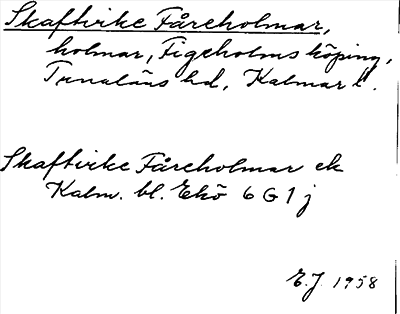 Skaftvike Fåreholmar,
holmar, Figeholms köping,
Tunaläns hd, Kalmar l.
Skaftvike Fåreholmar ek
Kalm. bl. Ekö 6 G 1 j
E.J. 1958